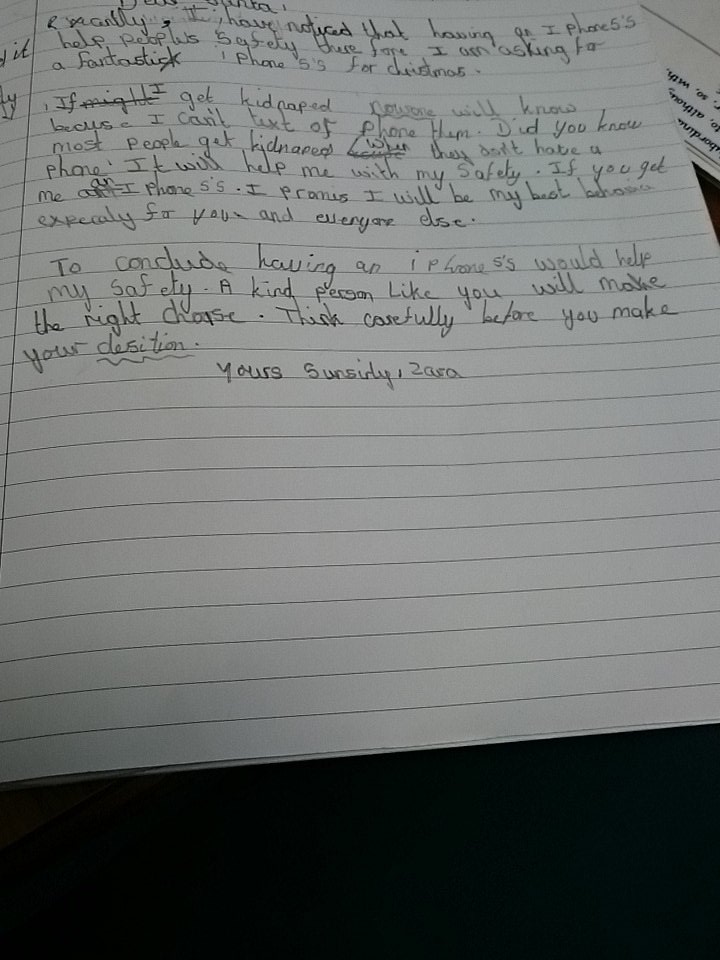 Dear Santa,
Rexantly, I, have noticed that having an I phone5's
help people's safety there fore I am asking for
a fantastick iphone 5's for christmas.
If might I get kidnaped nowone will know
becuse I can't text of phone them. Did you know
most people get kidnaped when they don't have a
phone. It will help me with my safety. If you get
me an I phone 5's. I promis I will be my best behavia
expecaly for you and everyone else.
To conclude having an iphone 5's would help
my safety. A kind person like you will make
the right choose. Think carefully before you make
your desition.
Yours Sunsirly, Zara
it